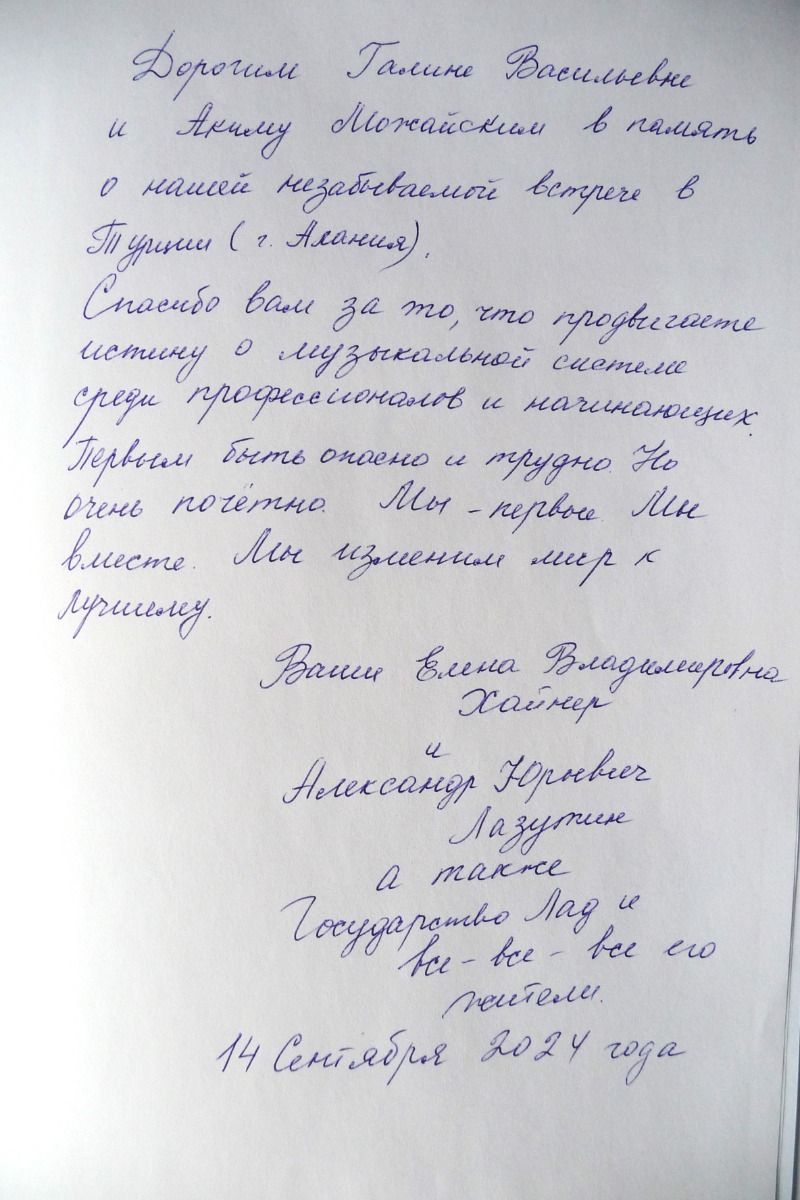 Дорогим Галине Васильевне
и Акиму Можайским в память
о нашей незабываемой встрече в
Турции (г. Алания).
Спасибо вам за то, что продвигаете
истину о музыкальной системе
среди профессионалов и начинающих.
Первым быть опасно и трудно. Но
очень почётно. Мы - первые. Мы
вместе. Мы изменим мир к
лучшему.
Ваши Елена Владимировна
Хайнер
и
Александр Юрьевич
Лазутин
а также
Государство Лад и
все - все - все его
жители.
14 Сентября 2024 года